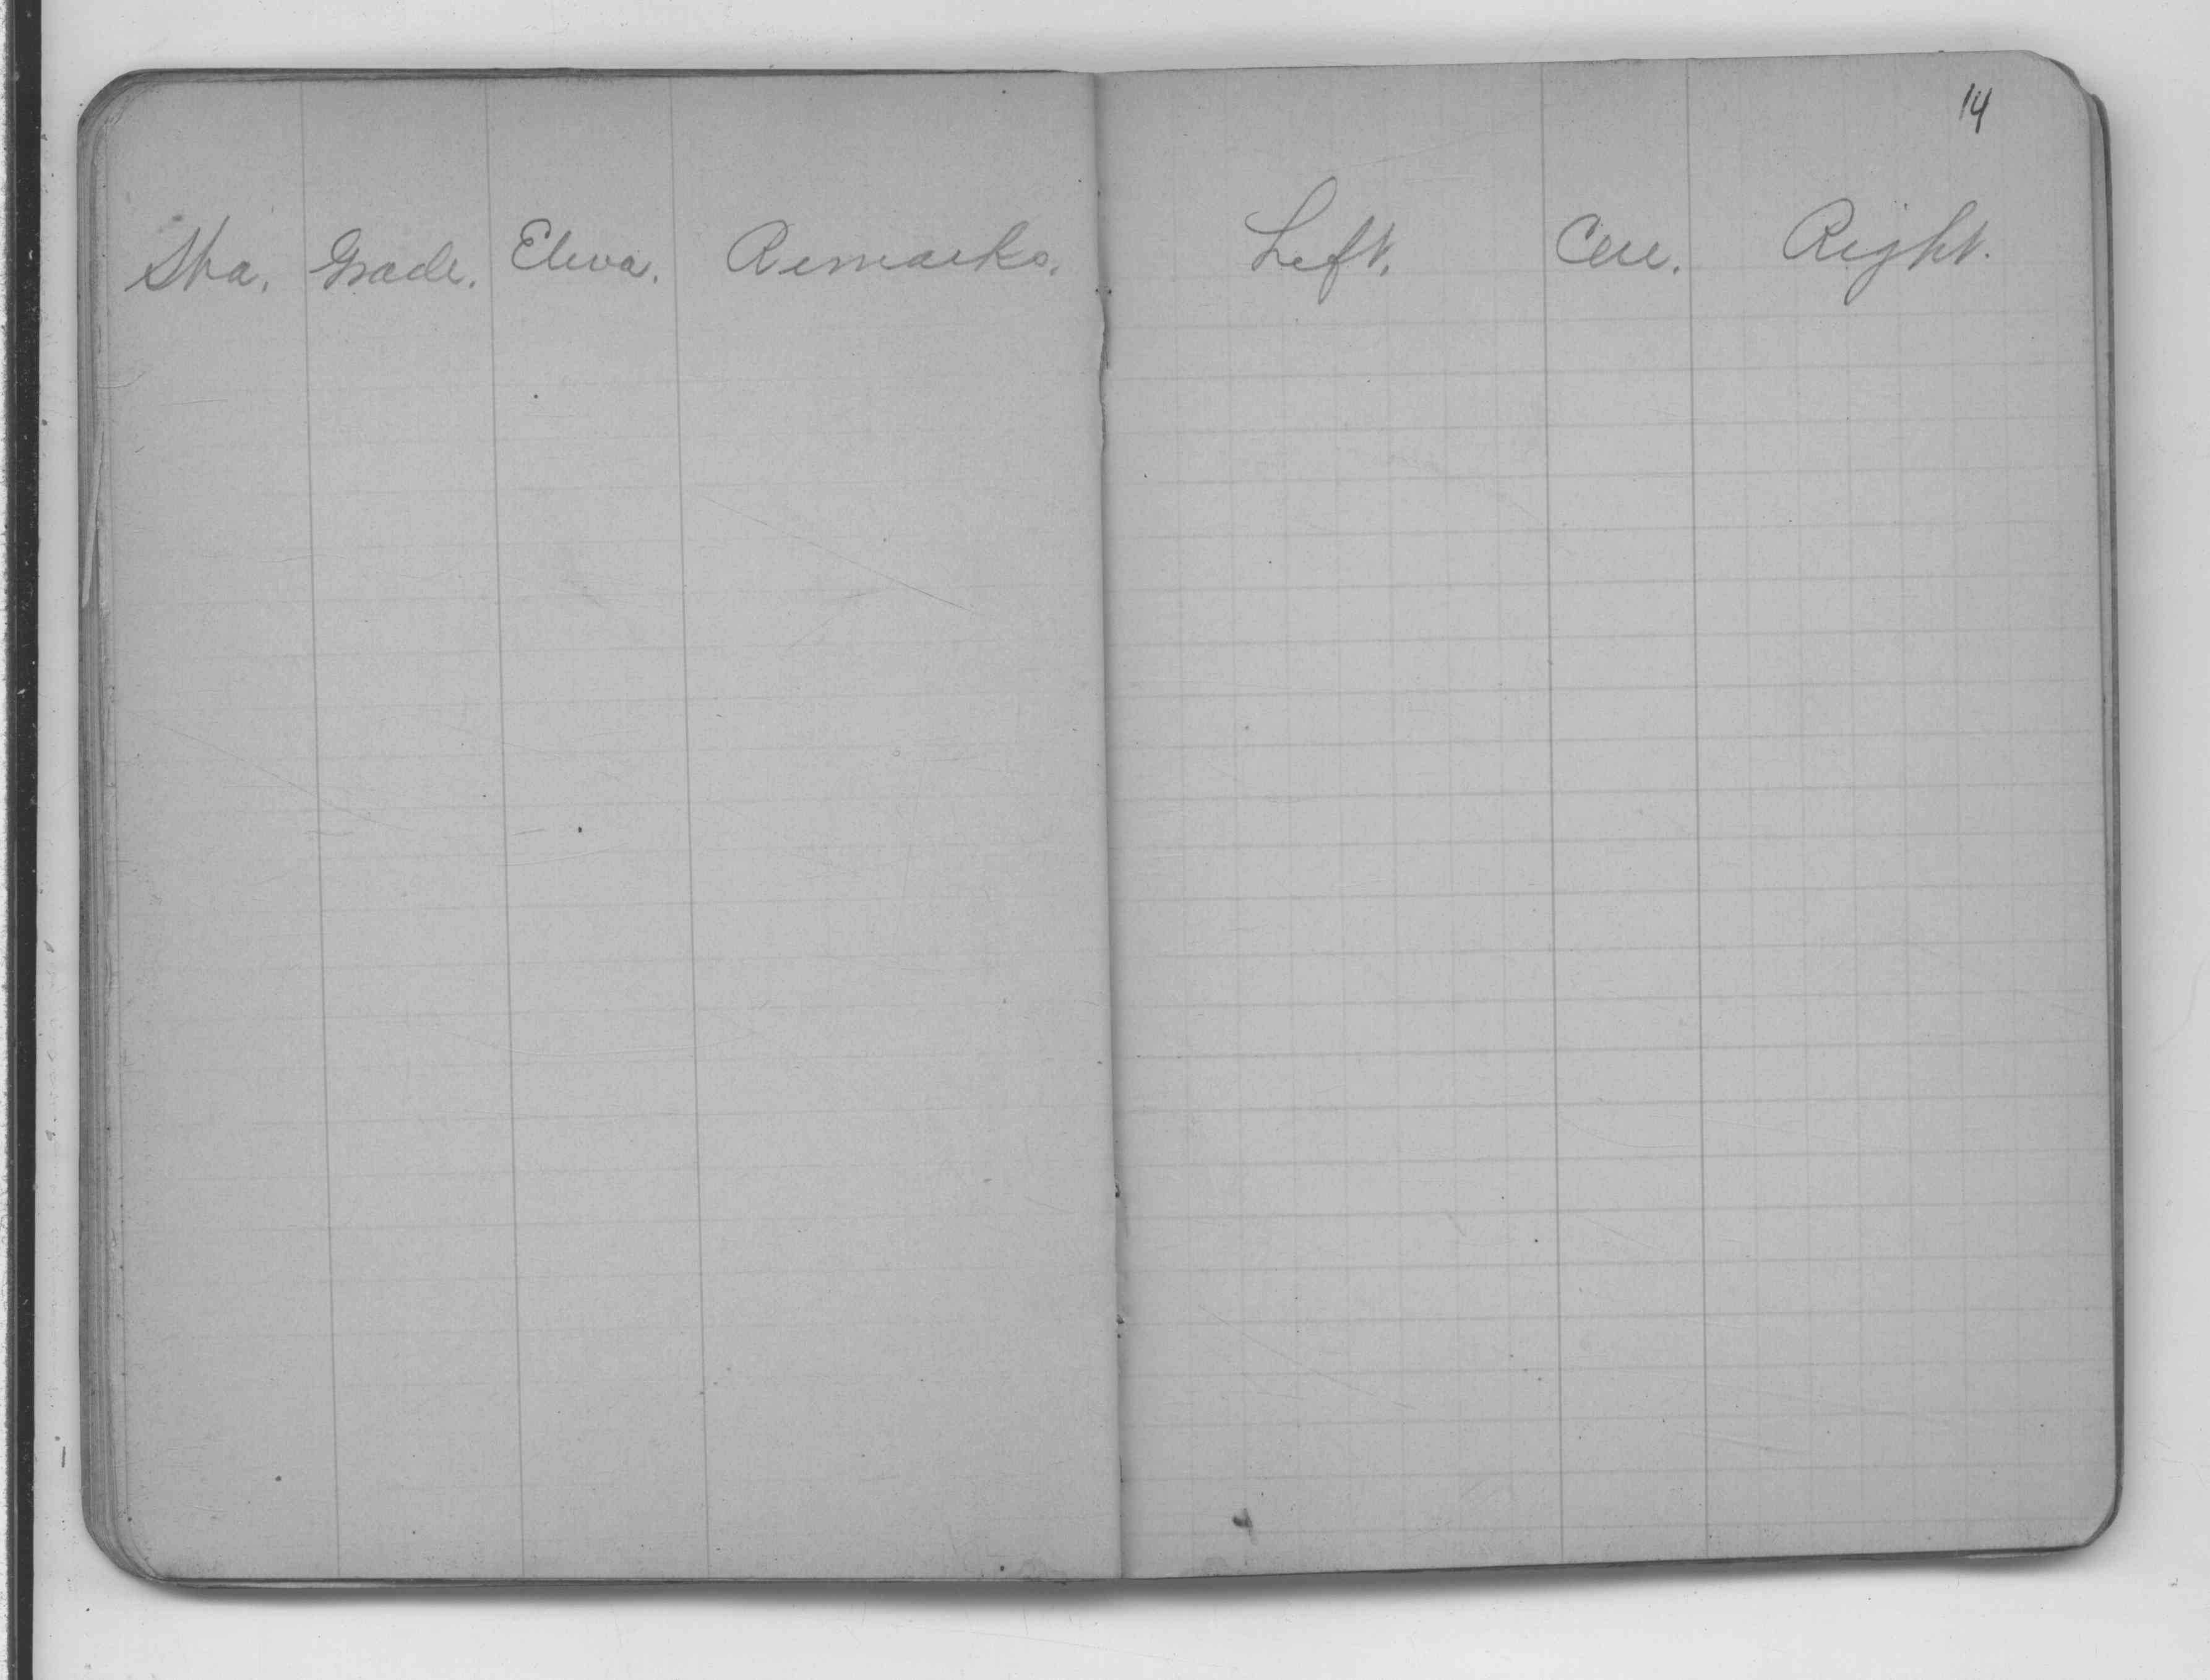 14
Sta. Grade. Eleva. Remarks. Left. Cen. Right.